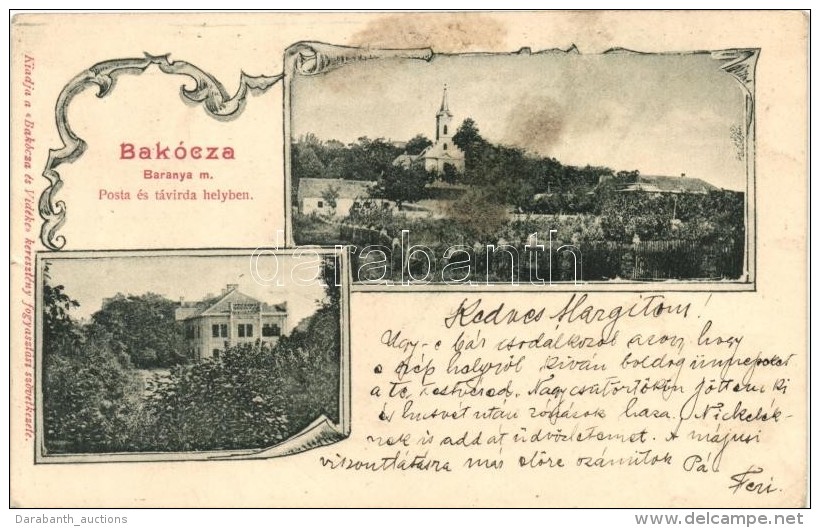 Bakócza
Baranya m.
Posta és távirda helyben.
Kiadja a «Bakócza és Vidéke» keresztény fogyasztási szövetkezete.
darabanth
Kedves Margitom!
Ugy-e bár csodálkozol azon, hogy
e szép helyről kiván boldog ünnepeket
a te testvéred. Nagycsütörtökön jöttem ki
és husvét után haza. Nickelék-
nek is add át üdvözletemet. A májusi
viszontlátásra már előre számitok Pá
Feri.
Darabanth_auctions
http://www.delcampe.net